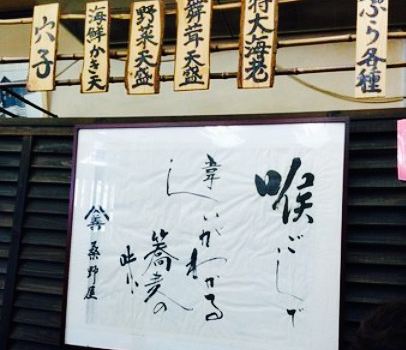 ぶり各種
特大海老
舞茸天盛
野菜天盛
海鮮かき天
穴子
喉ごしで
違いがわかる
蕎麦の
味
桑野屋